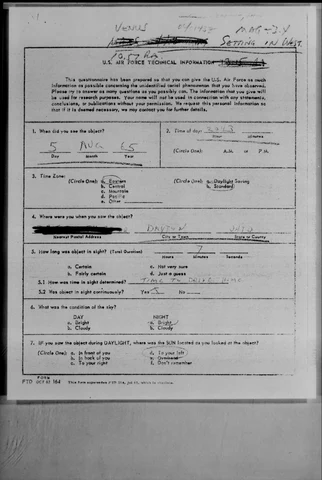 VENUS
SETTING IN WEST.
U.S. AIR FORCE TECHNICAL INFORMATION
This questionnaire has been prepared so that you can give the U.S. Air Force as much
information as possible concerning the unidentified aerial phenomenon that you have observed.
Please try to answer as many questions as you possibly can. The information that you give will
be used for research purposes. Your name will not be used in connection with any statements,
conclusions, or publications without your permission. We request this personal information so
that if it is deemed necessary, we may contact you for further details.
1. When did you see the object?
5 AUG 65
Day Month Year
2. Time of day:
Hour Minutes
(Circle One): A.M. or P.M.
3. Time Zone:
(Circle One): a. Eastern
b. Central
c. Mountain
d. Pacific
e. Other
(Circle One): a. Daylight Saving
b. Standard
4. Where were you when you saw the object?
DAYTON OHIO
Nearest Postal Address City or Town State or County
5. How long was object in sight? (Total Duration) 7
Hours Minutes Seconds
a. Certain c. Not very sure
b. Fairly certain d. Just a guess
5.1 How was time in sight determined? TIME TO DRIVE HOME
5.2 Was object in sight continuously? Yes No
6. What was the condition of the sky?
DAY NIGHT
a. Bright a. Bright
b. Cloudy b. Cloudy
7. IF you saw the object during DAYLIGHT, where was the SUN located as you looked at the object?
(Circle One): a. In front of you d. To your left
b. In back of you e. Overhead
c. To your right f. Don't remember
FORM
FTD OCT 62 164 This form supersedes